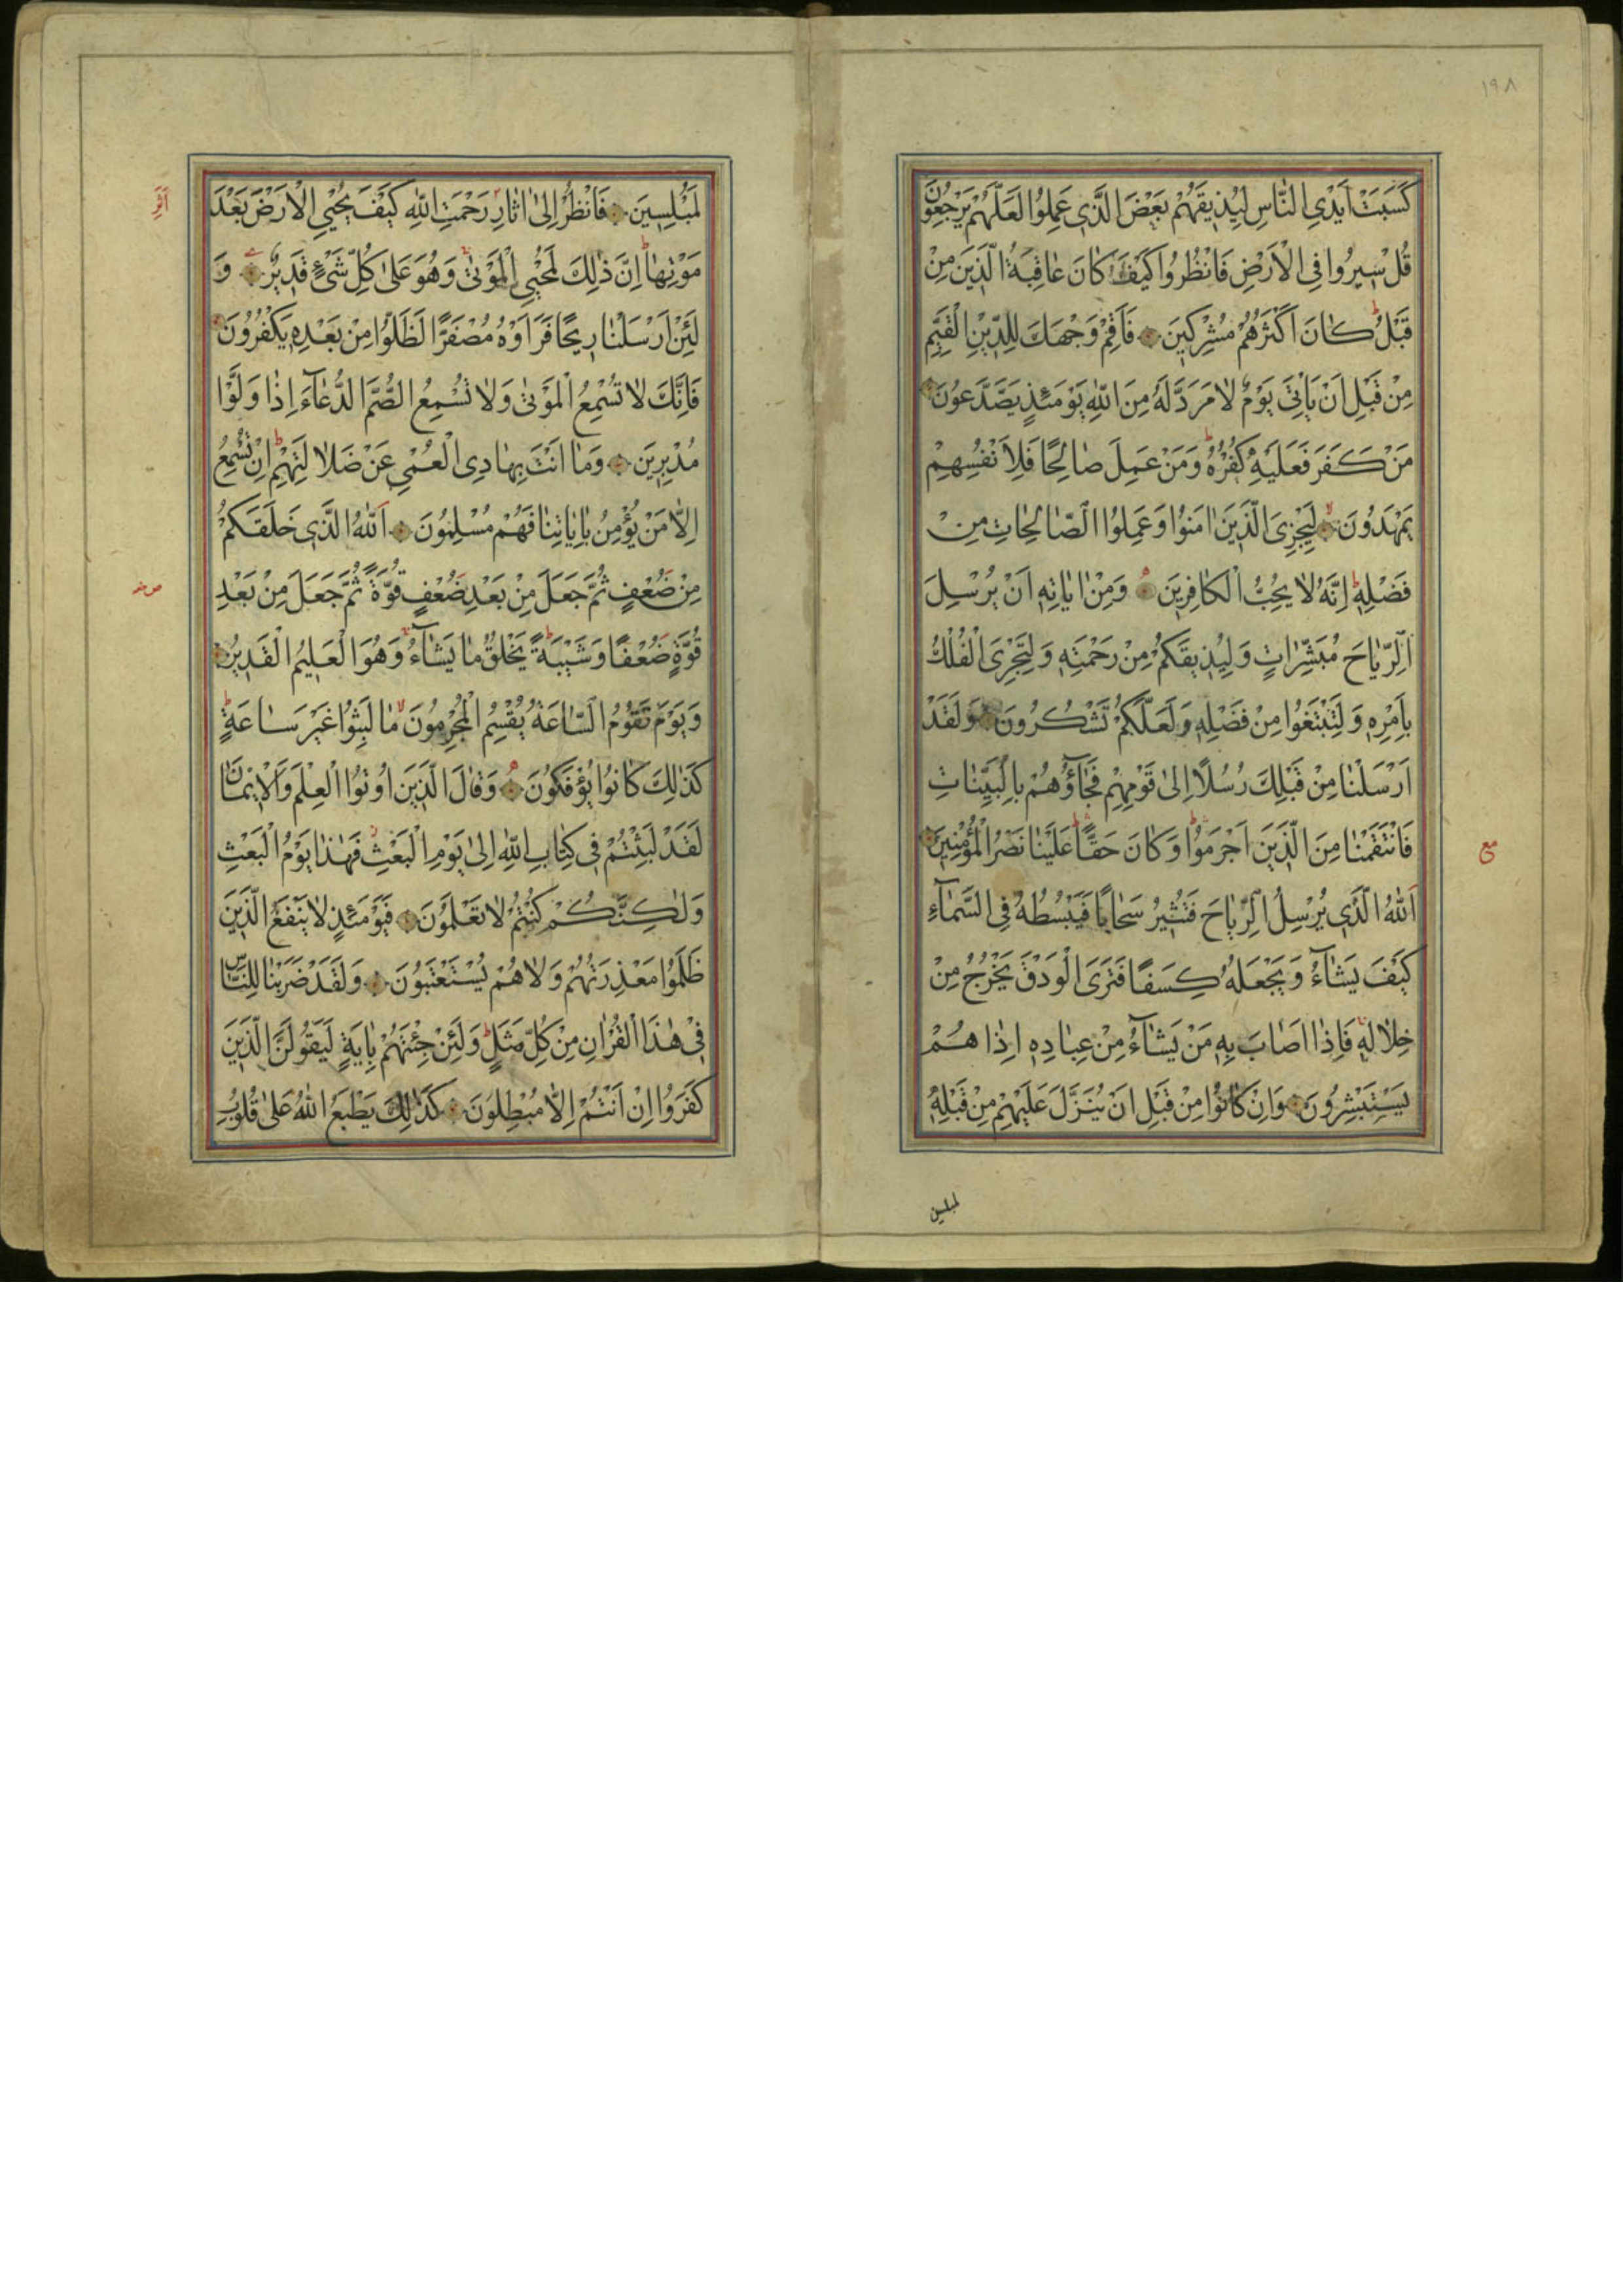 ١٩٨
كَسَبَتْ اَيْدِى النَّاسِ لِيُذِيقَهُمْ بَعْضَ الَّذِى عَمِلُوا لَعَلَّهُمْ يَرْجِعُونَ
قُلْ سِيرُوا فِى الْاَرْضِ فَانْظُرُوا كَيْفَ كَانَ عَاقِبَةُ الَّذِينَ مِنْ
قَبْلُ كَانَ اَكْثَرُهُمْ مُشْرِكِينَ فَاَقِمْ وَجْهَكَ لِلدِّينِ الْقَيِّمِ
مِنْ قَبْلِ اَنْ يَاْتِىَ يَوْمٌ لَا مَرَدَّ لَهُ مِنَ اللّٰهِ يَوْمَئِذٍ يَصَّدَّعُونَ
مَنْ كَفَرَ فَعَلَيْهِ كُفْرُهُ وَمَنْ عَمِلَ صَالِحًا فَلِاَنْفُسِهِمْ
يَمْهَدُونَ لِيَجْزِىَ الَّذِينَ اٰمَنُوا وَعَمِلُوا الصَّالِحَاتِ مِنْ
فَضْلِهِ اِنَّهُ لَا يُحِبُّ الْكَافِرِينَ وَمِنْ اٰيَاتِهِ اَنْ يُرْسِلَ
الرِّيَاحَ مُبَشِّرَاتٍ وَلِيُذِيقَكُمْ مِنْ رَحْمَتِهِ وَلِتَجْرِىَ الْفُلْكُ
بِاَمْرِهِ وَلِتَبْتَغُوا مِنْ فَضْلِهِ وَلَعَلَّكُمْ تَشْكُرُونَ وَلَقَدْ
اَرْسَلْنَا مِنْ قَبْلِكَ رُسُلًا اِلٰى قَوْمِهِمْ فَجَآؤُهُمْ بِالْبَيِّنَاتِ
فَانْتَقَمْنَا مِنَ الَّذِينَ اَجْرَمُوا وَكَانَ حَقًّا عَلَيْنَا نَصْرُ الْمُؤْمِنِينَ
مع
اَللّٰهُ الَّذِى يُرْسِلُ الرِّيَاحَ فَتُثِيرُ سَحَابًا فَيَبْسُطُهُ فِى السَّمَآءِ
كَيْفَ يَشَآءُ وَيَجْعَلُهُ كِسَفًا فَتَرَى الْوَدْقَ يَخْرُجُ مِنْ
خِلَالِهِ فَاِذَا اَصَابَ بِهِ مَنْ يَشَآءُ مِنْ عِبَادِهِ اِذَا هُمْ
يَسْتَبْشِرُونَ وَاِنْ كَانُوا مِنْ قَبْلِ اَنْ يُنَزَّلَ عَلَيْهِمْ مِنْ قَبْلِهِ
لمبلسين
لَمُبْلِسِينَ فَانْظُرْ اِلٰى اٰثَارِ رَحْمَتِ اللّٰهِ كَيْفَ يُحْيِى الْاَرْضَ بَعْدَ
مَوْتِهَا اِنَّ ذٰلِكَ لَمُحْيِى الْمَوْتٰى وَهُوَ عَلٰى كُلِّ شَىْءٍ قَدِيرٌ وَ
لَئِنْ اَرْسَلْنَا رِيحًا فَرَاَوْهُ مُصْفَرًّا لَظَلُّوا مِنْ بَعْدِهِ يَكْفُرُونَ
فَاِنَّكَ لَا تُسْمِعُ الْمَوْتٰى وَلَا تُسْمِعُ الصُّمَّ الدُّعَآءَ اِذَا وَلَّوْا
مُدْبِرِينَ وَمَا اَنْتَ بِهَادِى الْعُمْىِ عَنْ ضَلَالَتِهِمْ اِنْ تُسْمِعُ
اِلَّا مَنْ يُؤْمِنُ بِاٰيَاتِنَا فَهُمْ مُسْلِمُونَ اَللّٰهُ الَّذِى خَلَقَكُمْ
مِنْ ضَعْفٍ ثُمَّ جَعَلَ مِنْ بَعْدِ ضَعْفٍ قُوَّةً ثُمَّ جَعَلَ مِنْ بَعْدِ
قُوَّةٍ ضَعْفًا وَشَيْبَةً يَخْلُقُ مَا يَشَآءُ وَهُوَ الْعَلِيمُ الْقَدِيرُ
وَيَوْمَ تَقُومُ السَّاعَةُ يُقْسِمُ الْمُجْرِمُونَ مَا لَبِثُوا غَيْرَ سَاعَةٍ
كَذٰلِكَ كَانُوا يُؤْفَكُونَ وَقَالَ الَّذِينَ اُوتُوا الْعِلْمَ وَالْاِيمَانَ
لَقَدْ لَبِثْتُمْ فِى كِتَابِ اللّٰهِ اِلٰى يَوْمِ الْبَعْثِ فَهٰذَا يَوْمُ الْبَعْثِ
وَلٰكِنَّكُمْ كُنْتُمْ لَا تَعْلَمُونَ فَيَوْمَئِذٍ لَا يَنْفَعُ الَّذِينَ
ظَلَمُوا مَعْذِرَتُهُمْ وَلَا هُمْ يُسْتَعْتَبُونَ وَلَقَدْ ضَرَبْنَا لِلنَّاسِ
فِى هٰذَا الْقُرْاٰنِ مِنْ كُلِّ مَثَلٍ وَلَئِنْ جِئْتَهُمْ بِاٰيَةٍ لَيَقُولَنَّ الَّذِينَ
كَفَرُوا اِنْ اَنْتُمْ اِلَّا مُبْطِلُونَ كَذٰلِكَ يَطْبَعُ اللّٰهُ عَلٰى قُلُوبِ